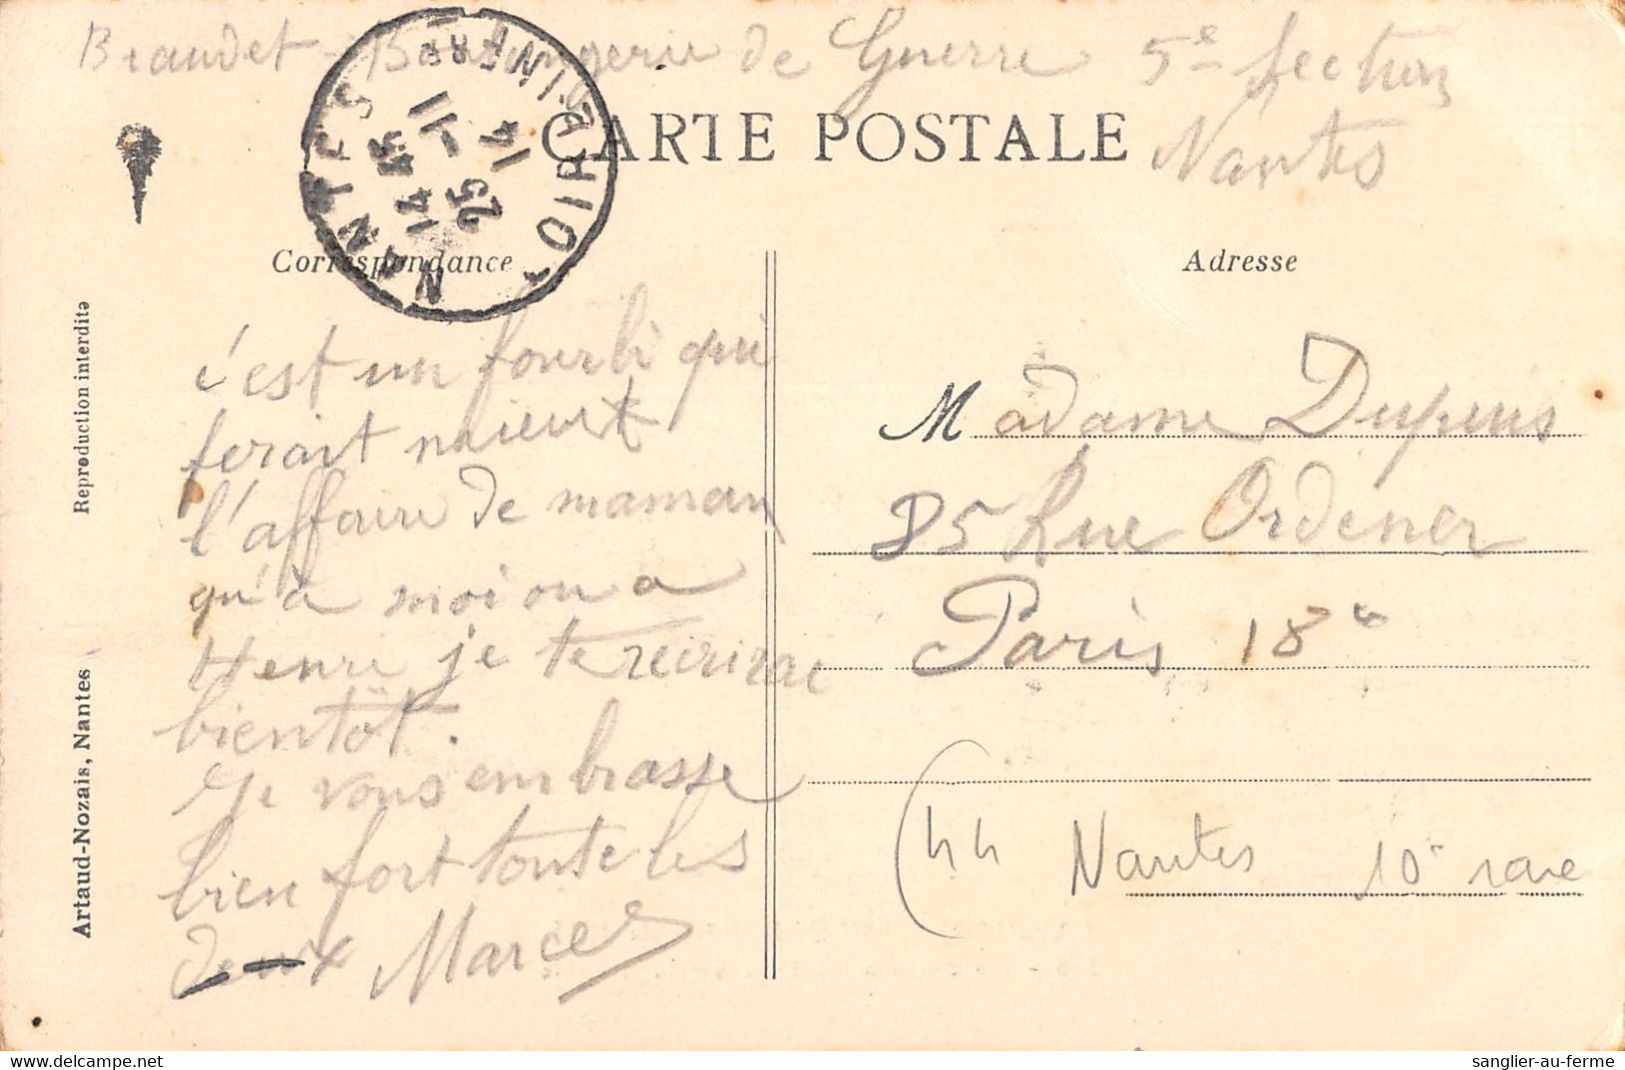 Beaudet - Boulangerie de Guerre 5e Section
Nantes
CARTE POSTALE
NANTES
LOIRE INFRE
14 45
25 -11
14
Correspondance
Adresse
Reproduction interdite
Artaud-Nozais, Nantes
c'est un fourbi qui
ferait mieux
l'affaire de maman
qu'à moi ou a
Henri je te reécrirai
bientôt.
Je vous embrasse
bien fort toute les
deux Marcel
Madame Dupuis
85 Rue Ordener
Paris 18e
(44 Nantes 10- rare
delcampe.net
sanglier-au-ferme